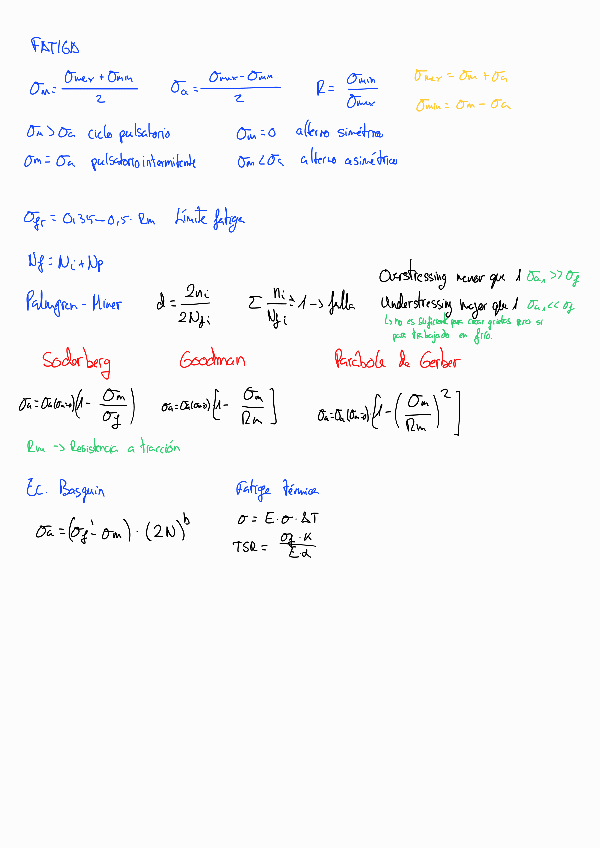 FATIGA
σm = (σmax + σmin)/2   σa = (σmax - σmin)/2   R = σmin/σmax   σmax = σm + σa
σmin = σm - σa
σm > σa ciclo pulsatorio   σm = 0 alterno simétrico
σm = σa pulsatorio intermitente   σm < σa alterno asimétrico
σfr = 0,35 - 0,5 · Rm   Límite fatiga
Nf = Ni + Np
Overstressing menor que 1 σa1 >> σf
Palmgren - Miner   d = 2ni/2Nfi   Σ ni/Nfi = 1 -> falla   Understressing mayor que 1 σa1 << σf
↳ no es suficiente para crear grietas pero si
para trabajado en frío.
Soderberg   Goodman   Parábola de Gerber
σa = σa(σm=0)(1 - σm/σy)   σa = σa(σm=0)[1 - σm/Rm]   σa = σa(σm=0)[1 - (σm/Rm)^2]
Rm -> Resistencia a tracción
Ec. Basquin   Fatiga térmica
σa = (σf' - σm) · (2N)^b   σ = E · σ · ΔT
TSR = σf · K / E · α